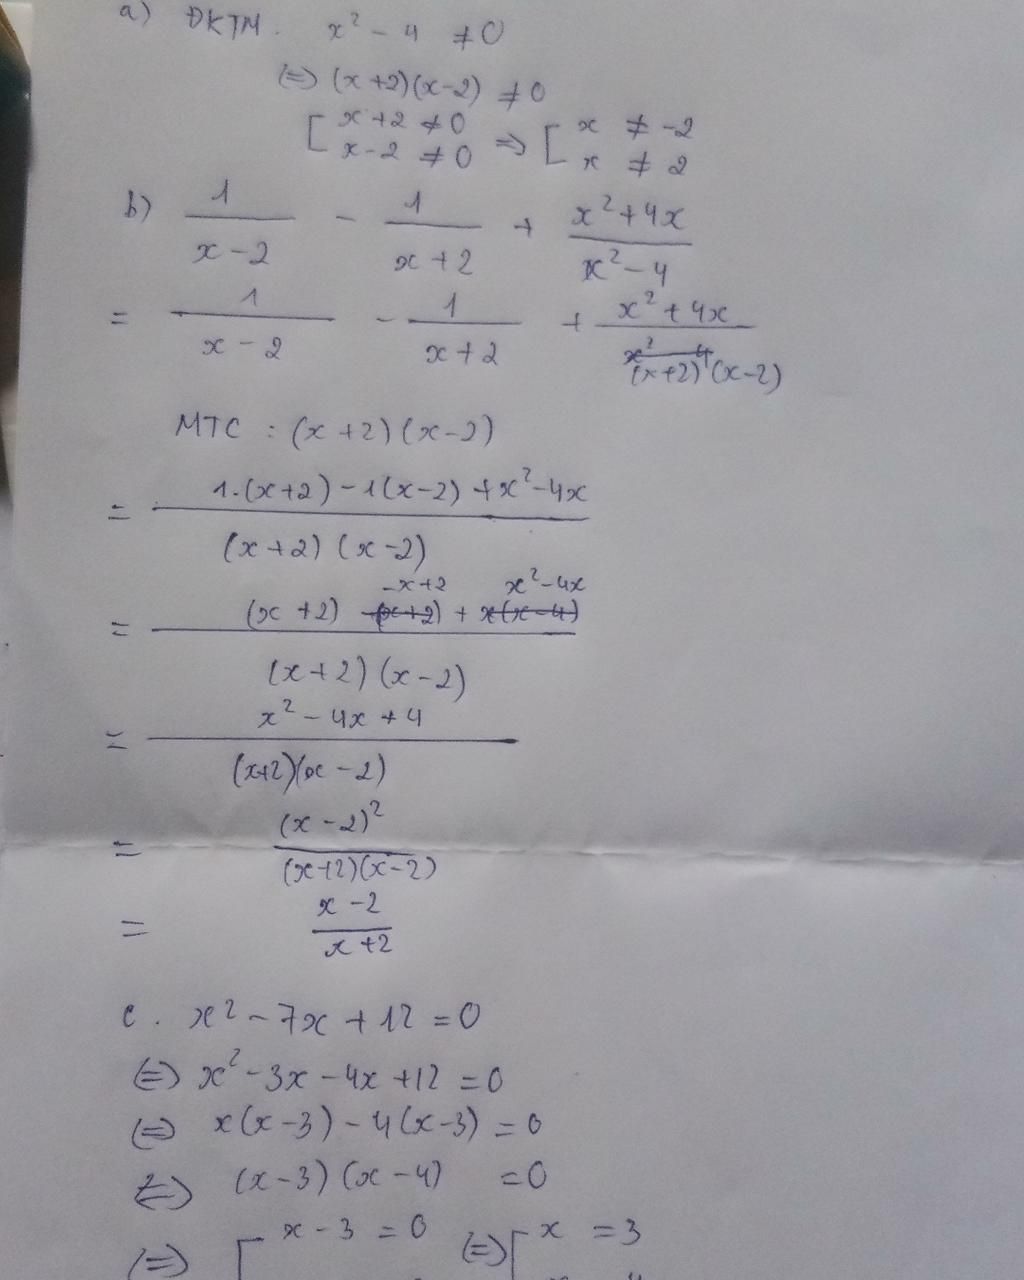 a) ĐKTM. x² - 4 ≠ 0
(=) (x+2)(x-2) ≠ 0
[ x+2 ≠ 0 => [ x ≠ -2
x-2 ≠ 0 x ≠ 2
b) 1/(x-2) - 1/(x+2) + (x²+4x)/(x²-4)
= 1/(x-2) - 1/(x+2) + (x²+4x)/((x+2)(x-2))
MTC : (x+2)(x-2)
= (1.(x+2) - 1(x-2) + x²-4x)/((x+2)(x-2))
= ((x+2) -x+2 + x²-4x)/((x+2)(x-2))
= (x²-4x+4)/((x+2)(x-2))
= (x-2)²/((x+2)(x-2))
= (x-2)/(x+2)
c. x² - 7x + 12 = 0
(=) x² - 3x - 4x + 12 = 0
(=) x(x-3) - 4(x-3) = 0
(=) (x-3)(x-4) = 0
(=) [ x-3 = 0 (=) [ x = 3